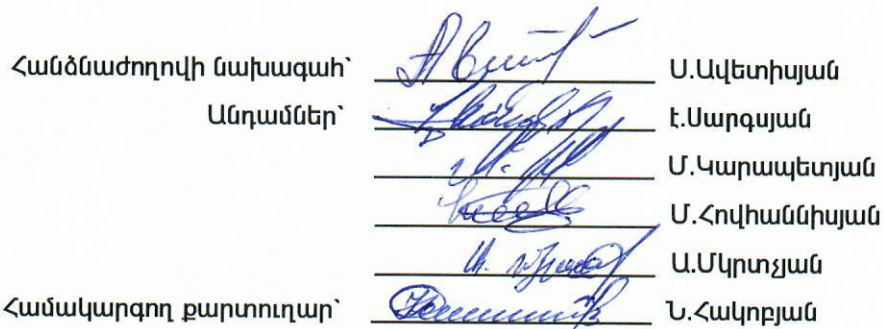 Հանձնաժողովի նախագահ՝ Ս.Ավետիսյան
Անդամներ՝ Է.Սարգսյան
Մ.Կարապետյան
Մ.Հովհաննիսյան
Ա.Մկրտչյան
Համակարգող քարտուղար՝ Ն.Հակոբյան